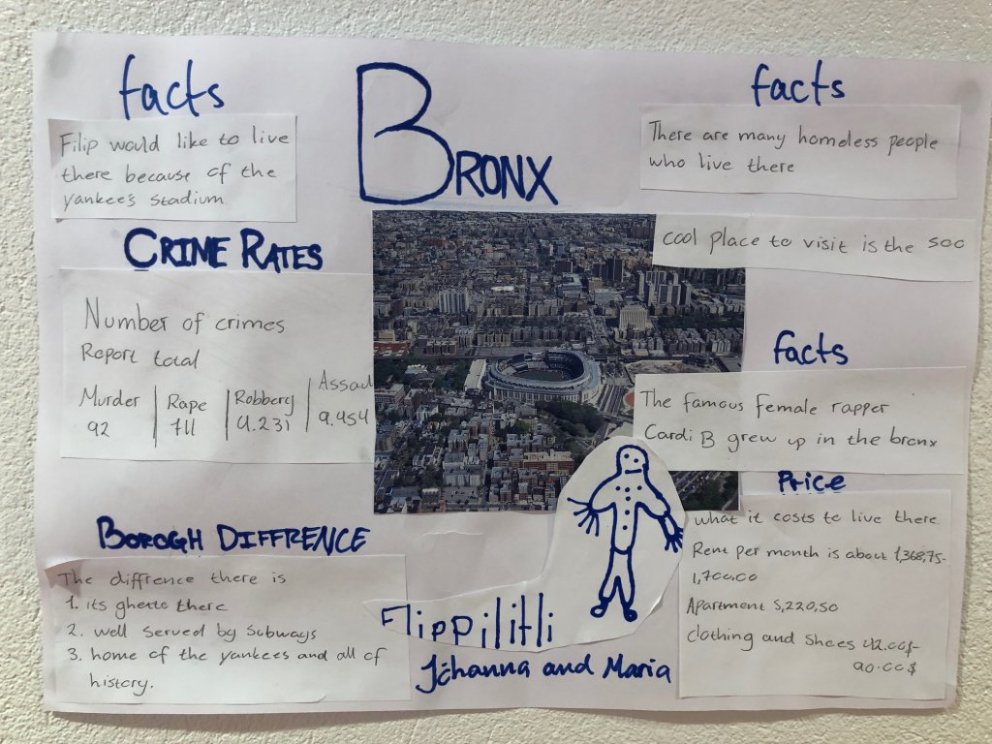 BRONX
facts
Filip would like to live
there because of the
yankee's Stadium
CRIME RATES
Number of crimes
Report total
Murder
92
Rape
711
Robbery
4.231
Assaul
9.454
BOROGH DIFFRENCE
The diffrence there is
1. its ghetto there
2. well served by Subways
3. home of the yankees and all of
history.
facts
There are many homeless people
who live there
cool place to visit is the soo
facts
The famous female rapper
Cardi B grew up in the bronx
Price
what it costs to live there
Rent per month is about 1,368,75-
1,700.00
Apartment 5,220,50
Clothing and Shoes 42.00$-
90.00$
Flippilitli
Jóhanna and Maria